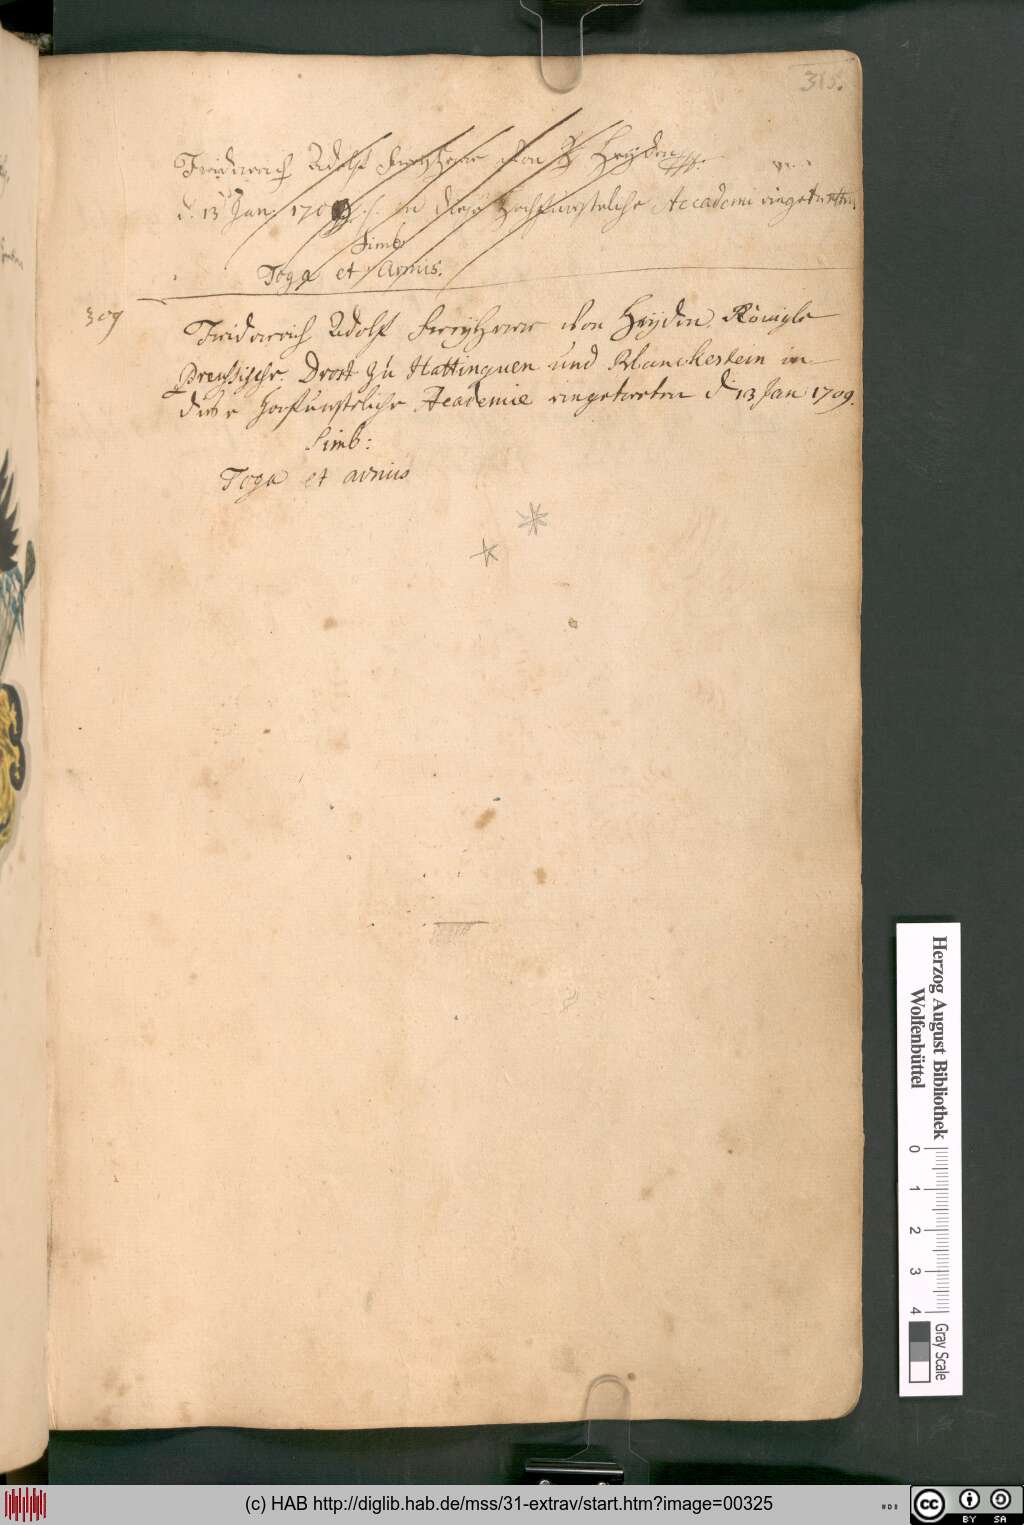 315.
Friderich Adolf freyherr von Heyden
d. 13 Jan: 1709 in diese Hochfürstliche Accademi eingetretten
Simb
Toga et Armis.
309
Friderich Adolf freyherr von Heyden. Königls
Preussischr. Drost zu Hattinguen und Blanckestein in
diese Hochfürstliche Academie eingetretten d 13 Jan 1709.
Simb:
Toga et armis
Herzog August Bibliothek
Wolfenbüttel
0 1 2 3 4
Gray Scale
(c) HAB http://diglib.hab.de/mss/31-extrav/start.htm?image=00325
cc BY SA